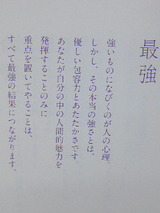 最強
強いものになびくのが人の心理
しかし、その本当の強さとは、
優しい包容力とあたたかさです
あなたが自分の中の人間的魅力を
発揮することのみに
重点を置いてやることは、
すべて最強の結果につながります。